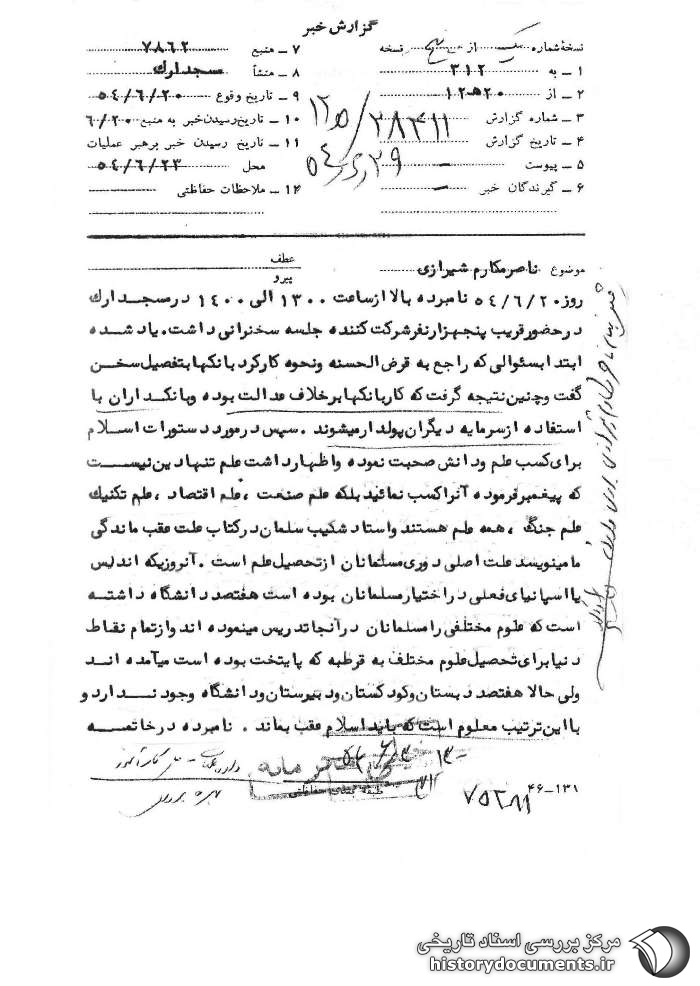 گزارش خبر
نسخهٔ شماره یک از پنج نسخه
۱ ـ به ۳۱۲
۲ ـ از ۲۰ﻫ۱۲
۳ ـ شماره گزارش ۲۸۳۱۱/۱۲۵
۴ ـ تاریخ گزارش
۵ ـ پیوست ـ
۶ ـ گیرندگان خبر ـ
۷ ـ منبع ۷۸۶۲
۸ ـ منشأ مسجد ارك
۹ ـ تاریخ وقوع ۵۴/۶/۲۰
۱۰ ـ تاریخ رسیدن خبر به منبع ۶/۲۰
۱۱ ـ تاریخ رسیدن خبر برهبر عملیات
محل ۵۴/۶/۲۳
۱۲ ـ ملاحظات حفاظتی
موضوع ناصر مکارم شیرازی
عطف
پیرو
روز ۵۴/۶/۲۰ نامبرده بالا از ساعت ۱۳۰۰ الی ۱۴۰۰ در مسجد ارك
در حضور قریب پنجهزار نفر شرکت کننده جلسه سخنرانی داشت. یاد شده
ابتدا بسئوالی که راجع به قرض الحسنه ونحوه کارکرد بانکها بتفصیل سخن
گفت وچنین نتیجه گرفت که کار بانکها برخلاف عدالت بوده وبانکداران با
استفاده از سرمایه دیگران پولدار میشوند. سپس در مورد دستورات اسلام
برای کسب علم ودانش صحبت نموده واظهار داشت علم تنها دین نیست
که پیغمبر فرموده آنرا کسب نمائید بلکه علم صنعت ، علم اقتصاد ، علم تکنیك
علم جنگ ، همه علم هستند واستاد شکیب سلمان در کتاب علت عقب ماندگی
ما مینویسد علت اصلی دوری مسلمانان از تحصیل علم است . آنروزیکه اندلیس
یا اسپانیای فعلی در اختیار مسلمانان بوده است هفتصد دانشگاه داشته
است که علوم مختلفی را مسلمانان در آنجا تدریس مینموده اند واز تمام نقاط
دنیا برای تحصیل علوم مختلف به قرطبه که پایتخت بوده است میآمده اند
ولی حالا هفتصد دبستان وکودکستان ودبیرستان ودانشگاه وجود ندارد و
با این ترتیب معلوم است که باید اسلام عقب بماند . نامبرده در خاتمه
محرمانه
طبقه بندی حفاظتی
۴۶-۱۳۱
مرکز بررسی اسناد تاریخی
historydocuments.ir